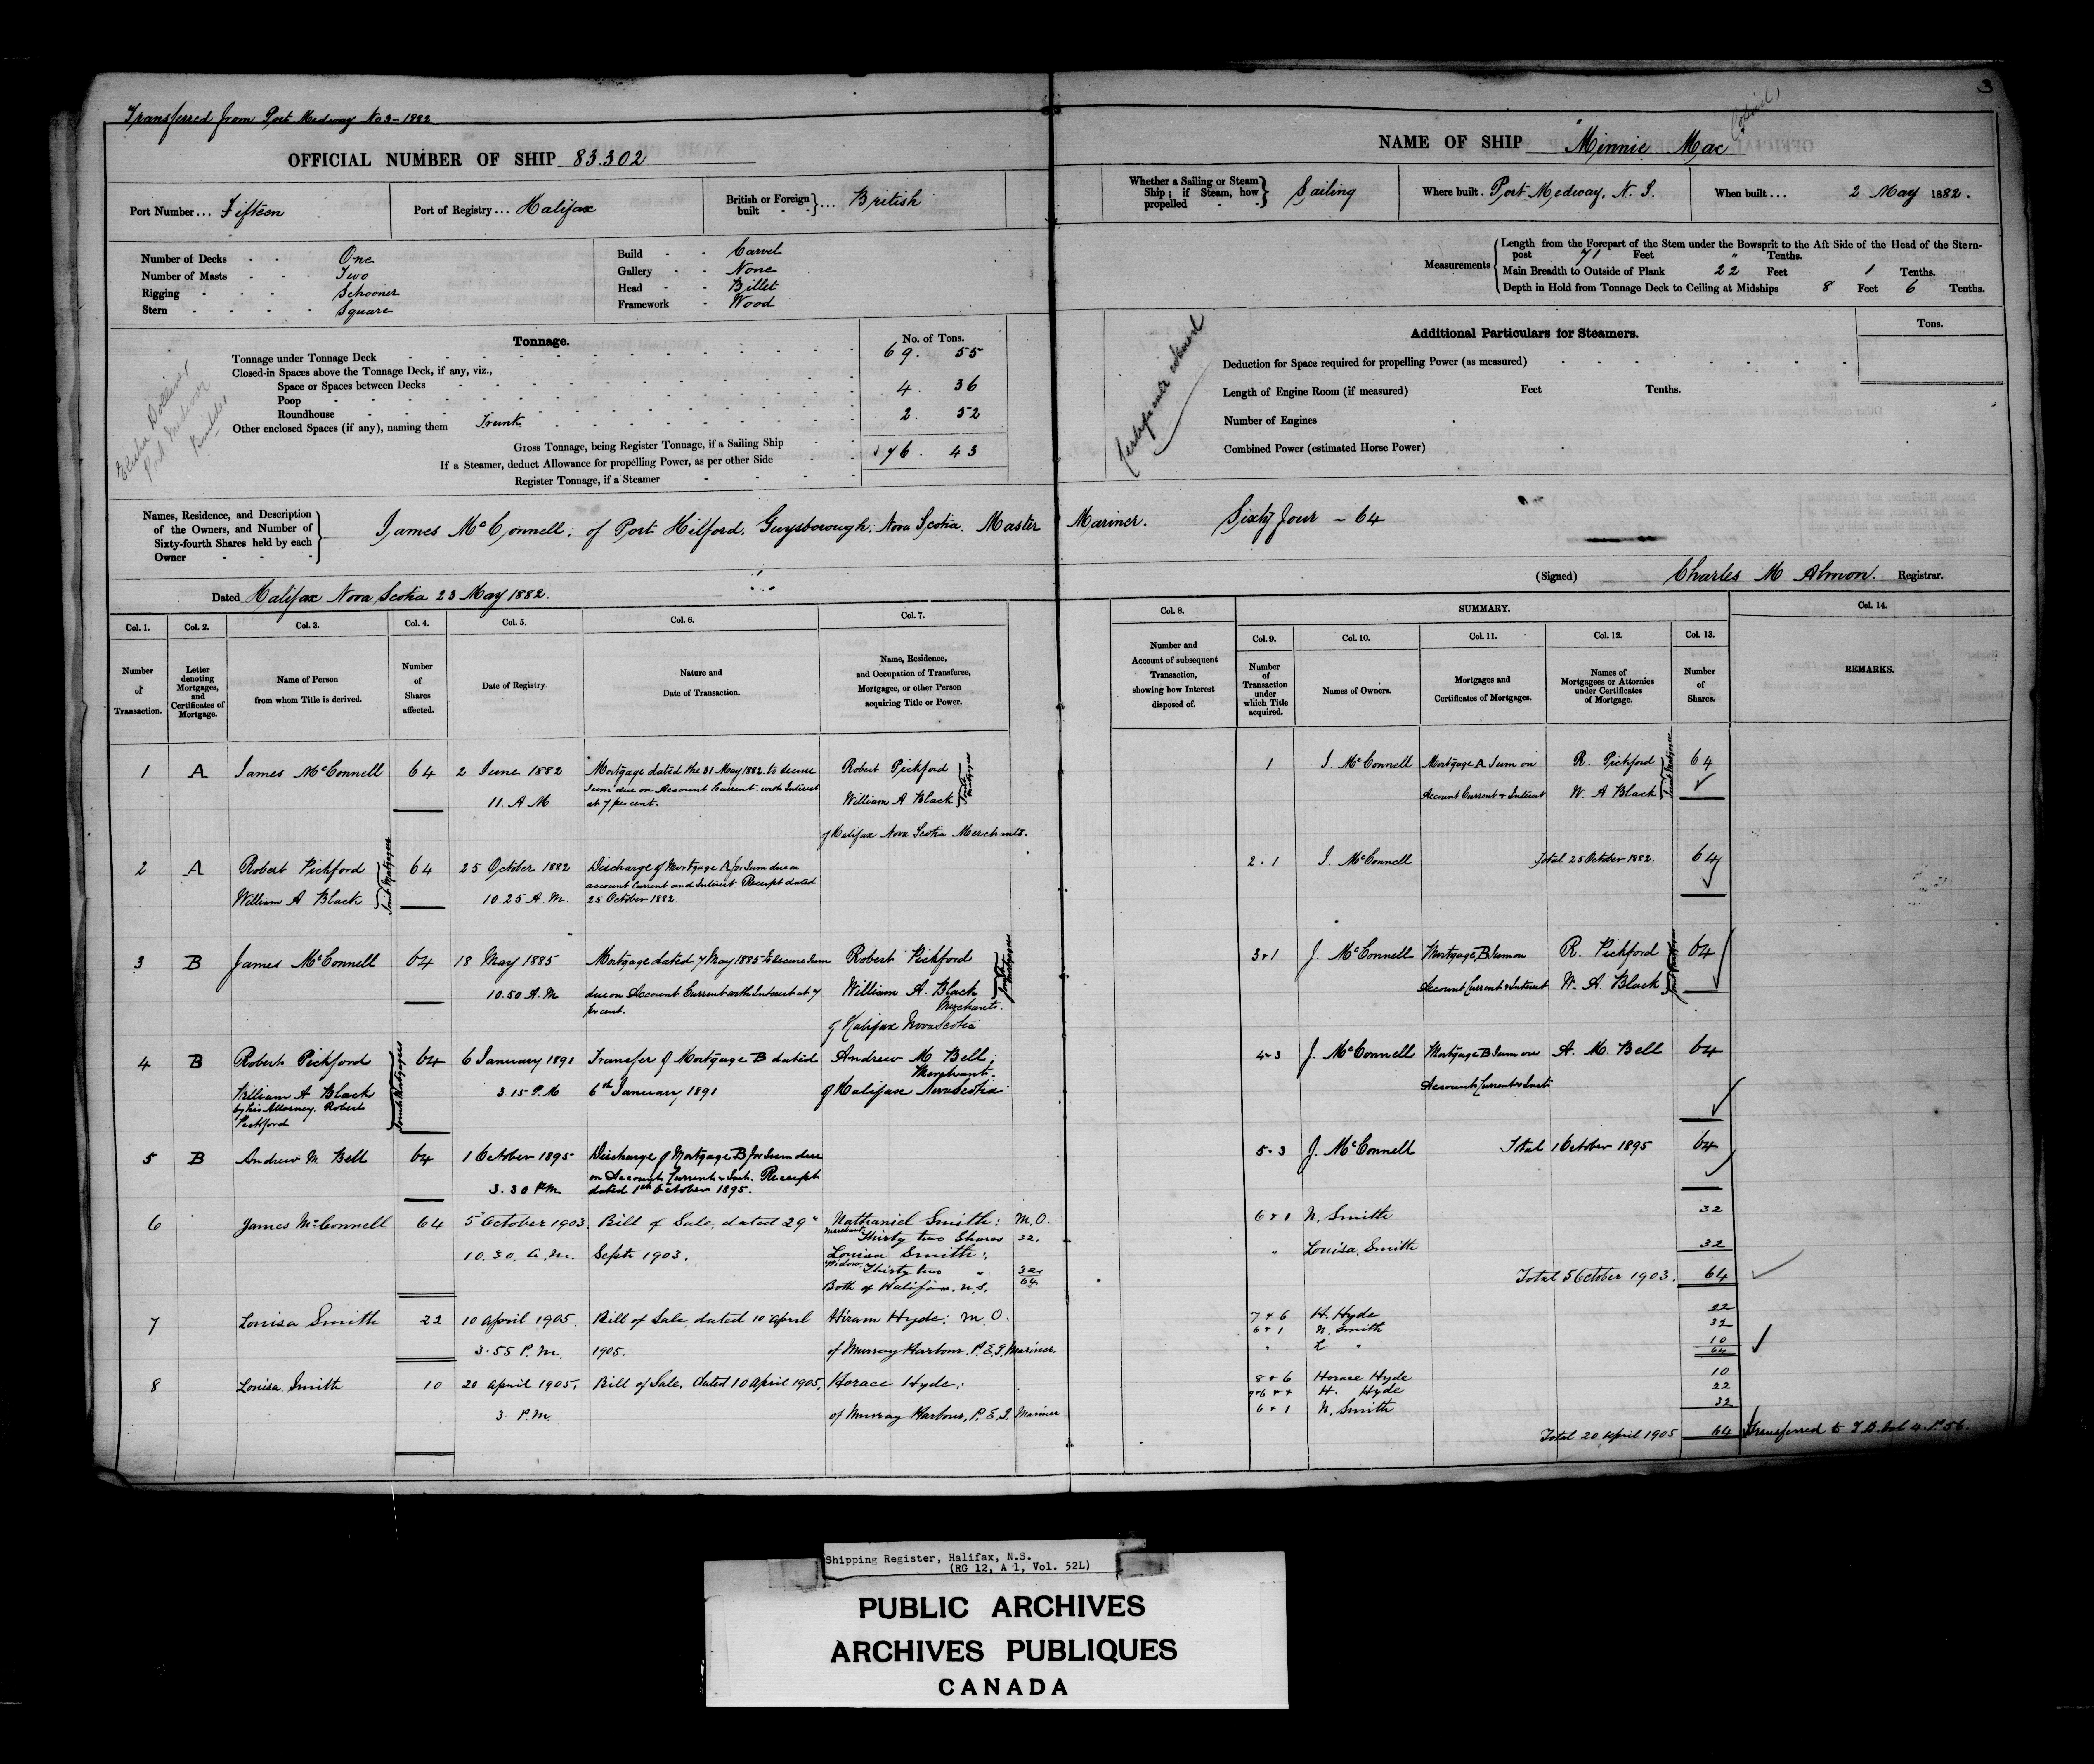 3
Transferred from Port Medway No 3 - 1882
OFFICIAL NUMBER OF SHIP 83.302
NAME OF SHIP "Minnie Mac"
Port Number... Fifteen
Port of Registry... Halifax
British or Foreign built - - } ... British
Whether a Sailing or Steam Ship; if Steam, how propelled - - } Sailing
Where built. Port Medway, N. S.
When built... 2 May 1882.
Number of Decks - - One
Number of Masts - - Two
Rigging - - - Schooner
Stern - - - - Square
Build - - Carvel
Gallery - - None
Head - - Billet
Framework - Wood
Measurements { Length from the Forepart of the Stem under the Bowsprit to the Aft Side of the Head of the Stern-
post 71 Feet " Tenths.
Main Breadth to Outside of Plank 22 Feet 1 Tenths.
Depth in Hold from Tonnage Deck to Ceiling at Midships 8 Feet 6 Tenths.
Tonnage.
No. of Tons.
Tonnage under Tonnage Deck 69. 55
Closed-in Spaces above the Tonnage Deck, if any, viz.,
Space or Spaces between Decks 4. 36
Poop
Roundhouse 2. 52
Other enclosed Spaces (if any), naming them Trunk
Gross Tonnage, being Register Tonnage, if a Sailing Ship 76. 43
If a Steamer, deduct Allowance for propelling Power, as per other Side
Register Tonnage, if a Steamer
Elisha Dolliver
Port Medway
Builder
Additional Particulars for Steamers.
Tons.
Deduction for Space required for propelling Power (as measured)
Length of Engine Room (if measured) Feet Tenths.
Number of Engines
Combined Power (estimated Horse Power)
Names, Residence, and Description of the Owners, and Number of Sixty-fourth Shares held by each Owner - - - }
James McConnell: of Port Hilford. Guysborough. Nova Scotia. Master Mariner. Sixty four - 64
Dated Halifax Nova Scotia 23 May 1882.
(Signed) Charles M Almon. Registrar.
Col. 1. Col. 2. Col. 3. Col. 4. Col. 5. Col. 6. Col. 7.
Number of Transaction.
Letter denoting Mortgages, and Certificates of Mortgage.
Name of Person from whom Title is derived.
Number of Shares affected.
Date of Registry.
Nature and Date of Transaction.
Name, Residence, and Occupation of Transferee, Mortgagee, or other Person acquiring Title or Power.
Col. 8.
Number and Account of subsequent Transaction, showing how Interest disposed of.
SUMMARY.
Col. 9. Col. 10. Col. 11. Col. 12. Col. 13. Col. 14.
Number of Transaction under which Title acquired.
Names of Owners.
Mortgages and Certificates of Mortgages.
Names of Mortgagees or Attornies under Certificates of Mortgage.
Number of Shares.
REMARKS.
1 A James McConnell 64 2 June 1882 Mortgage dated the 31 May 1882 to secure Robert Pickford
11. A M Sum due on Account Current with Interest at 7 per cent. William A Black } Joint Mortgagees
of Halifax Nova Scotia Merchants.
1 J. McConnell Mortgage A Sum on R. Pickford 64
Account Current & Interest W. A Black } Joint Mortgagees
2 A Robert Pickford 64 25 October 1882 Discharge of Mortgage A for Sum due on
William A Black } Joint Mortgagees 10.25 A. M. account Current and Interest. Receipt dated
25 October 1882.
2.1 J. McConnell Total 25 October 1882. 64
3 B James McConnell 64 18 May 1885 Mortgage dated 7 May 1885 to secure Sum Robert Pickford
10.50 A. M due on Account Current with Interest at 7 per cent. William A. Black } Joint Mortgagees
Merchants.
of Halifax Nova Scotia
3 & 1 J. McConnell Mortgage B Sum on R. Pickford 64
Account Current & Interest W. A. Black } Joint Mortgagees
4 B Robert Pickford 64 6 January 1891 Transfer of Mortgage B dated Andrew M Bell,
Merchant.
William A Black 3.15 P. M 6th January 1891 of Halifax Nova Scotia
by his Attorney. Robert
Pickford } Joint Mortgagees
4 & 3 J. McConnell Mortgage B Sum on A. M. Bell 64
Account Current & Inst.
5 B Andrew M Bell 64 1 October 1895 Discharge of Mortgage B for Sum due
3.30 P.M. on Account Current & Inst. Receipt
dated 1st October 1895.
5.3 J. McConnell Total 1 October 1895 64
6 James McConnell 64 5 October 1903 Bill of Sale, dated 29" Nathaniel Smith: M.O.
Merchant Thirty two Shares 32.
10.30. a.m. Septr 1903. Louisa Smith:
Widow Thirty two " 32
Both of Halifax. N.S. 64
6 & 1 N. Smith 32
" Louisa Smith 32
Total 5 October 1903. 64
7 Louisa Smith 22 10 April 1905. Bill of Sale, dated 10 April Hiram Hyde: M.O.
3.55 P.M. 1905. of Murray Harbour. P.E.I. Mariner.
7 & 6 H. Hyde 22
6 & 1 N. Smith 32
" L " 10
64
8 Louisa Smith 10 20 April 1905. Bill of Sale, dated 10 April 1905, Horace Hyde:
3. P.M. of Murray Harbour, P.E.I. Mariner
8 & 6 Horace Hyde 10
H. Hyde 22
6 & 1 N. Smith 32
Total 20 April 1905 64 Transferred to T.B. Vol 4. P. 56.
Shipping Register, Halifax, N.S.
(RG 12, A 1, Vol. 52L)
PUBLIC ARCHIVES
ARCHIVES PUBLIQUES
CANADA